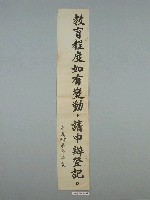 教育程度如有變動，請申辦登記。